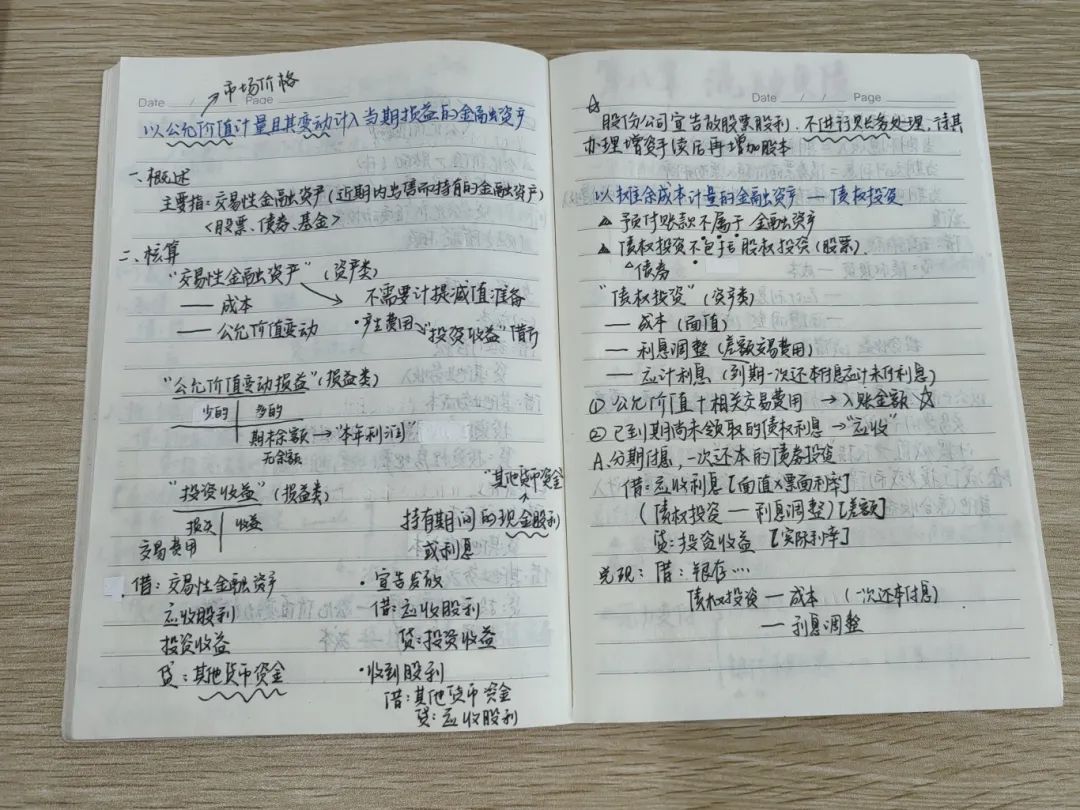 市场价格
Date / / Page
1) 以公允价值计量且其变动计入当期损益的金融资产
一、概述
主要指:交易性金融资产(近期内出售而持有的金融资产)
<股票、债券、基金>
二、核算
"交易性金融资产"(资产类)
— 成本 → 不需要计提减值准备
— 公允价值变动 ·产生费用→"投资收益"借方
"公允价值变动损益"(损益类)
少的 多的
期末余额→"本年利润"
无余额
"其他货币资金"
"投资收益"(损益类)
损失 收益 持有期间的现金股利
交易费用 或利息
借:交易性金融资产
应收股利
投资收益
贷:其他货币资金
·宣告发放
借:应收股利
贷:投资收益
·收到股利
借:其他货币资金
贷:应收股利
Date / / Page
☆ 股份公司宣告放股票股利,不进行账务处理,待其
办理增资手续后再增加股本
1) 以摊余成本计量的金融资产 — 债权投资
△ 预付账款不属于金融资产
△ 债权投资不包括股权投资(股票)
△债券
"债权投资"(资产类)
— 成本(面值)
— 利息调整(差额交易费用)
— 应计利息(到期一次还本付息应计未付利息)
① 公允价值+相关交易费用 → 入账金额 ☆
② 已到期尚未领取的债权利息→"应收"
A.分期付息,一次还本的债券投资
借:应收利息【面值×票面利率】
(债权投资 — 利息调整)【差额】
贷:投资收益 【实际利率】
兑现:借:银存…
债权投资 — 成本 (一次还本付息)
— 利息调整